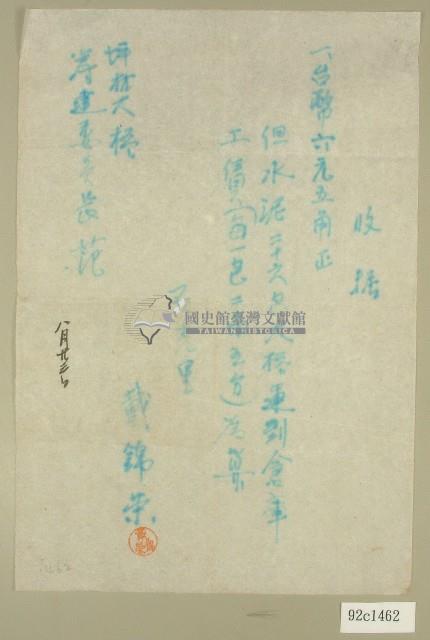 收據
一、台幣六元五角正
但水泥二十六包大橋運到倉庫
工價(每一包二角五分)為算
戴錦榮
坪林大橋
籌建委員長 范
八月廿三日
國史館臺灣文獻館
TAIWAN HISTORICA
92c1462